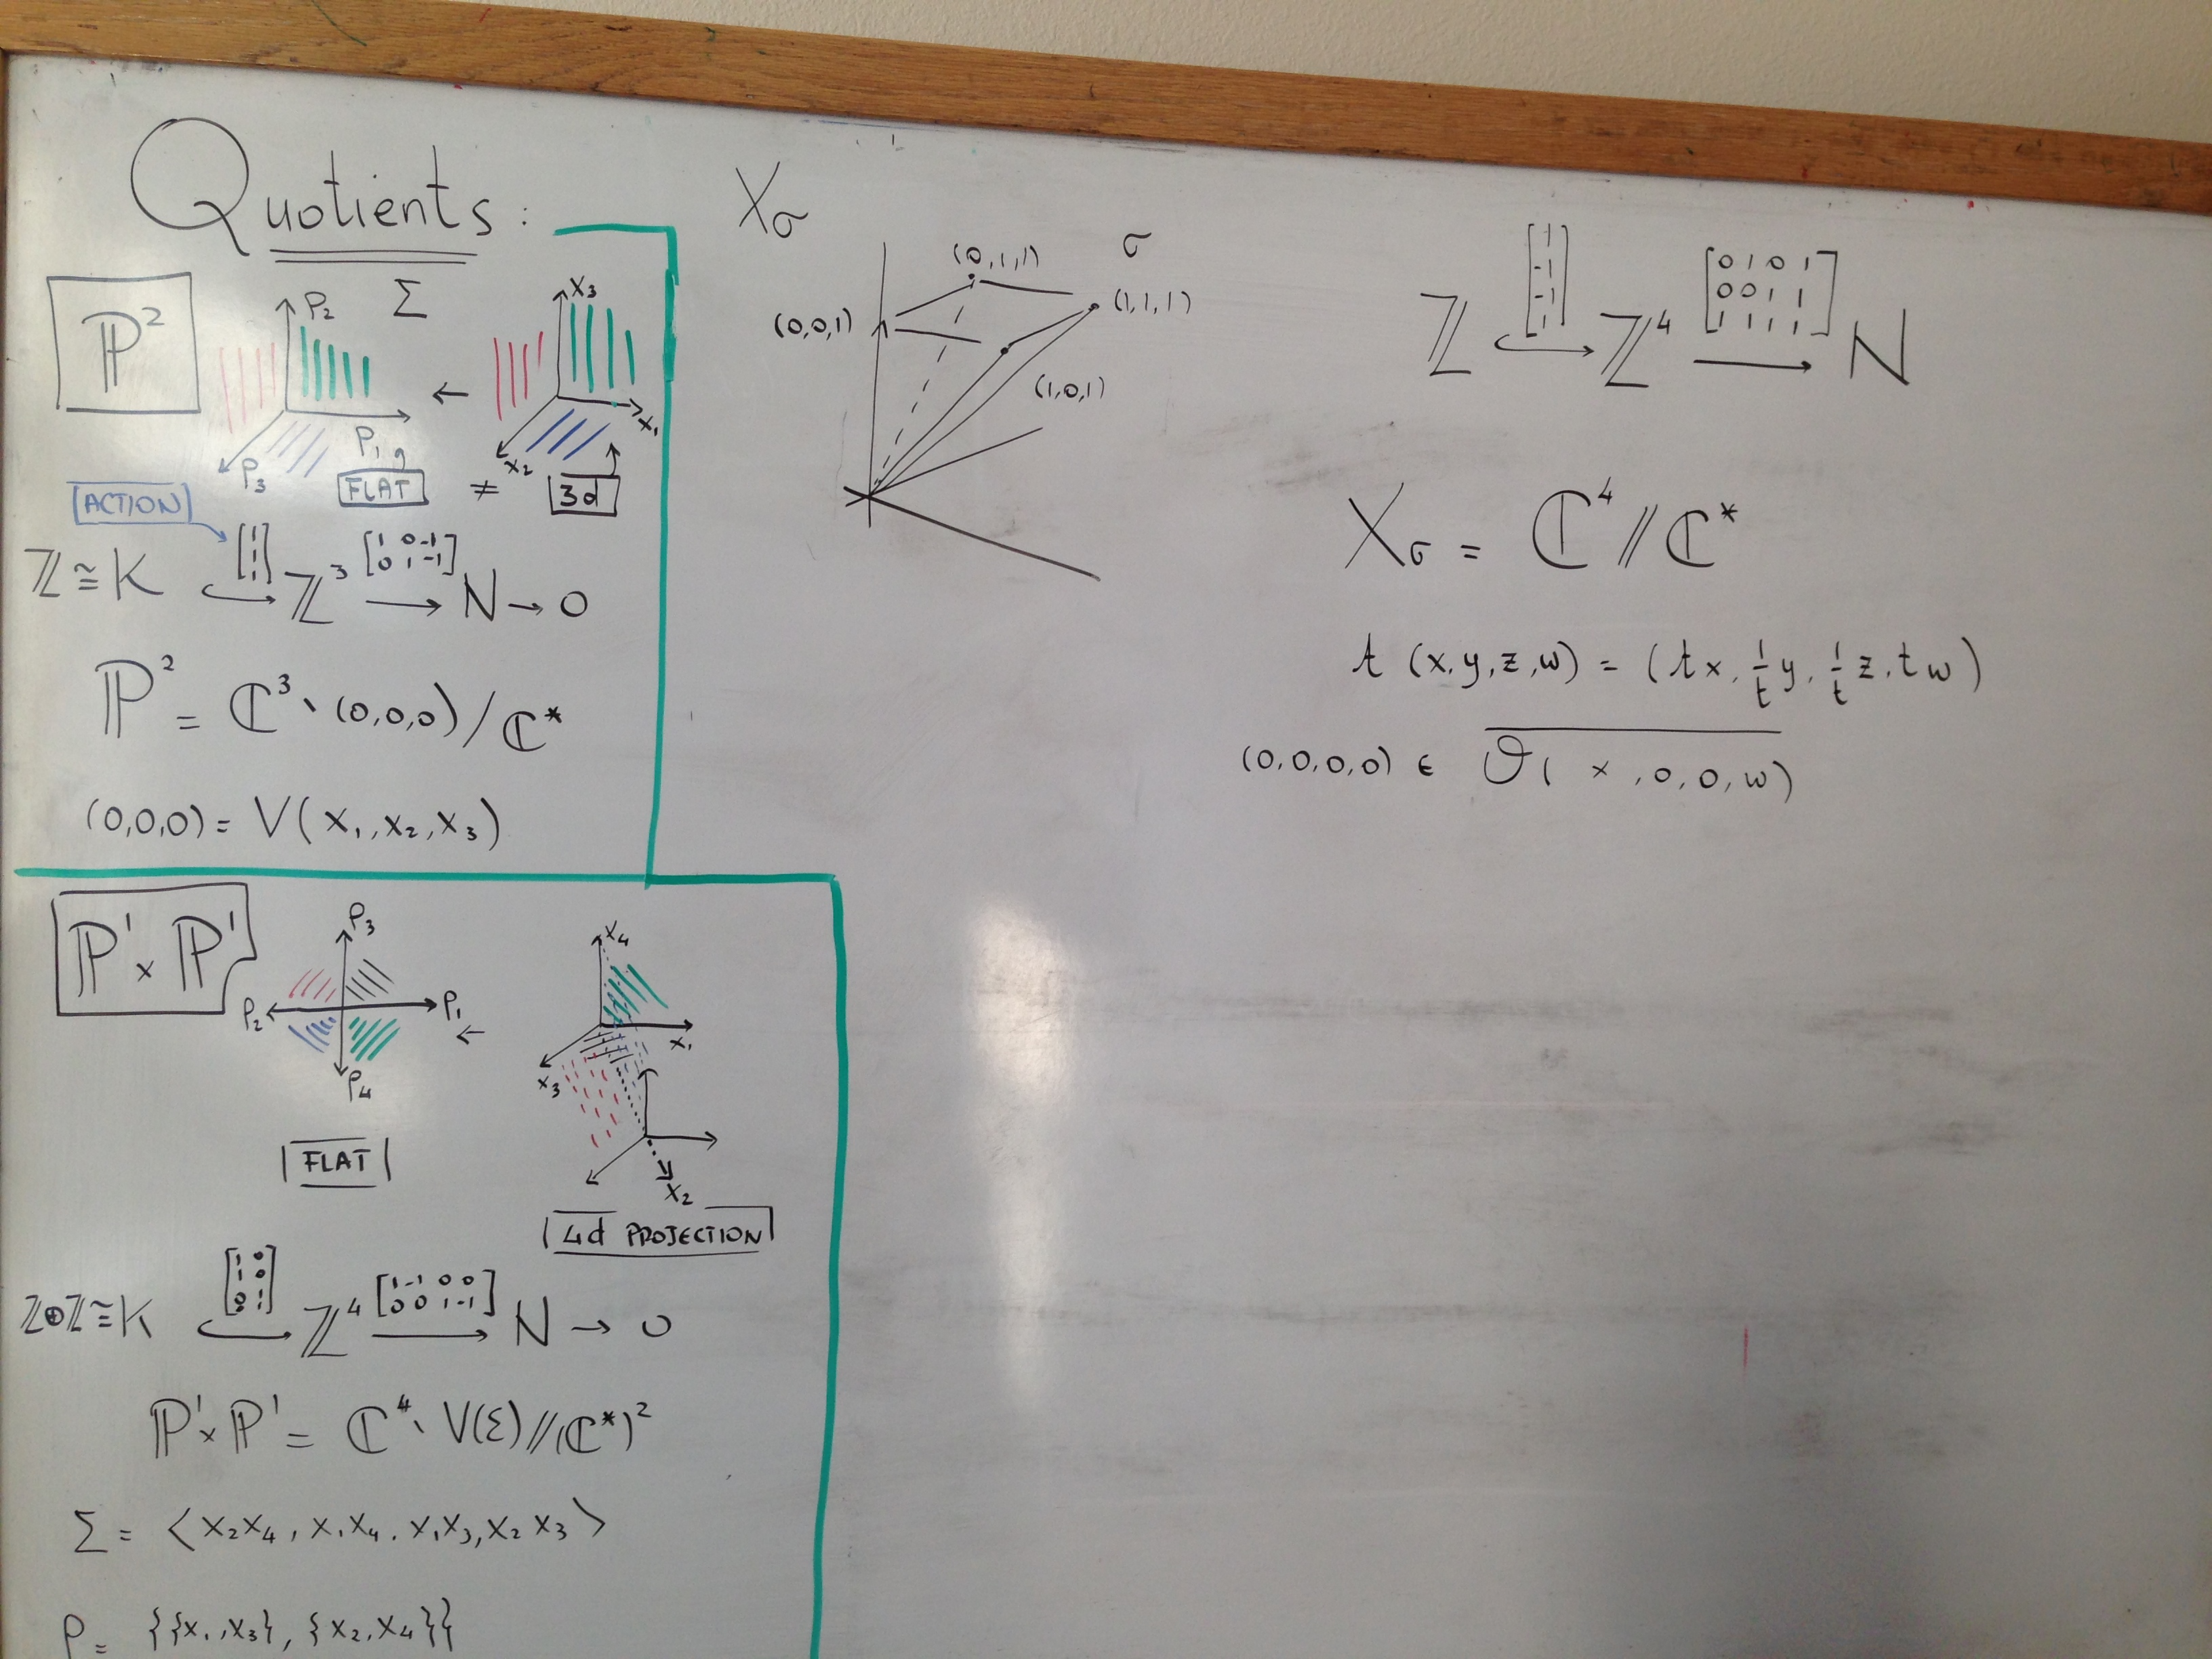 Quotients:
ℙ²
ρ₂
Σ
ρ₁
ρ₃
FLAT
≠
3d
←
x₃
x₁
x₂
ACTION
ℤ ≅ K ↪ [1 1 1] ℤ³ → [1 0 -1; 0 1 -1] N → 0
ℙ² = ℂ³ \ (0,0,0) / ℂ*
(0,0,0) = V(x₁, x₂, x₃)
ℙ¹ × ℙ¹
ρ₃
ρ₂
ρ₁
ρ₄
←
FLAT
x₄
x₁
x₃
x₂
4d PROJECTION
ℤ⊕ℤ ≅ K ↪ ℤ⁴ → [1 -1 0 0; 0 0 1 -1] N → 0
ℙ¹ × ℙ¹ = ℂ⁴ \ V(Σ) // (ℂ*)²
Σ = ⟨x₂x₄, x₁x₄, x₁x₃, x₂x₃⟩
ρ = {{x₁,x₃}, {x₂,x₄}}
X_σ
(0,1,1)
σ
(0,0,1)
(1,1,1)
(1,0,1)
ℤ ↪ [1 -1 -1 1] ℤ⁴ → [0 1 0 1; 0 0 1 1; 1 1 1 1] N
X_σ = ℂ⁴ // ℂ*
t (x,y,z,w) = (tx, 1/t y, 1/t z, tw)
(0,0,0,0) ∈ \overline{O(x,0,0,w)}